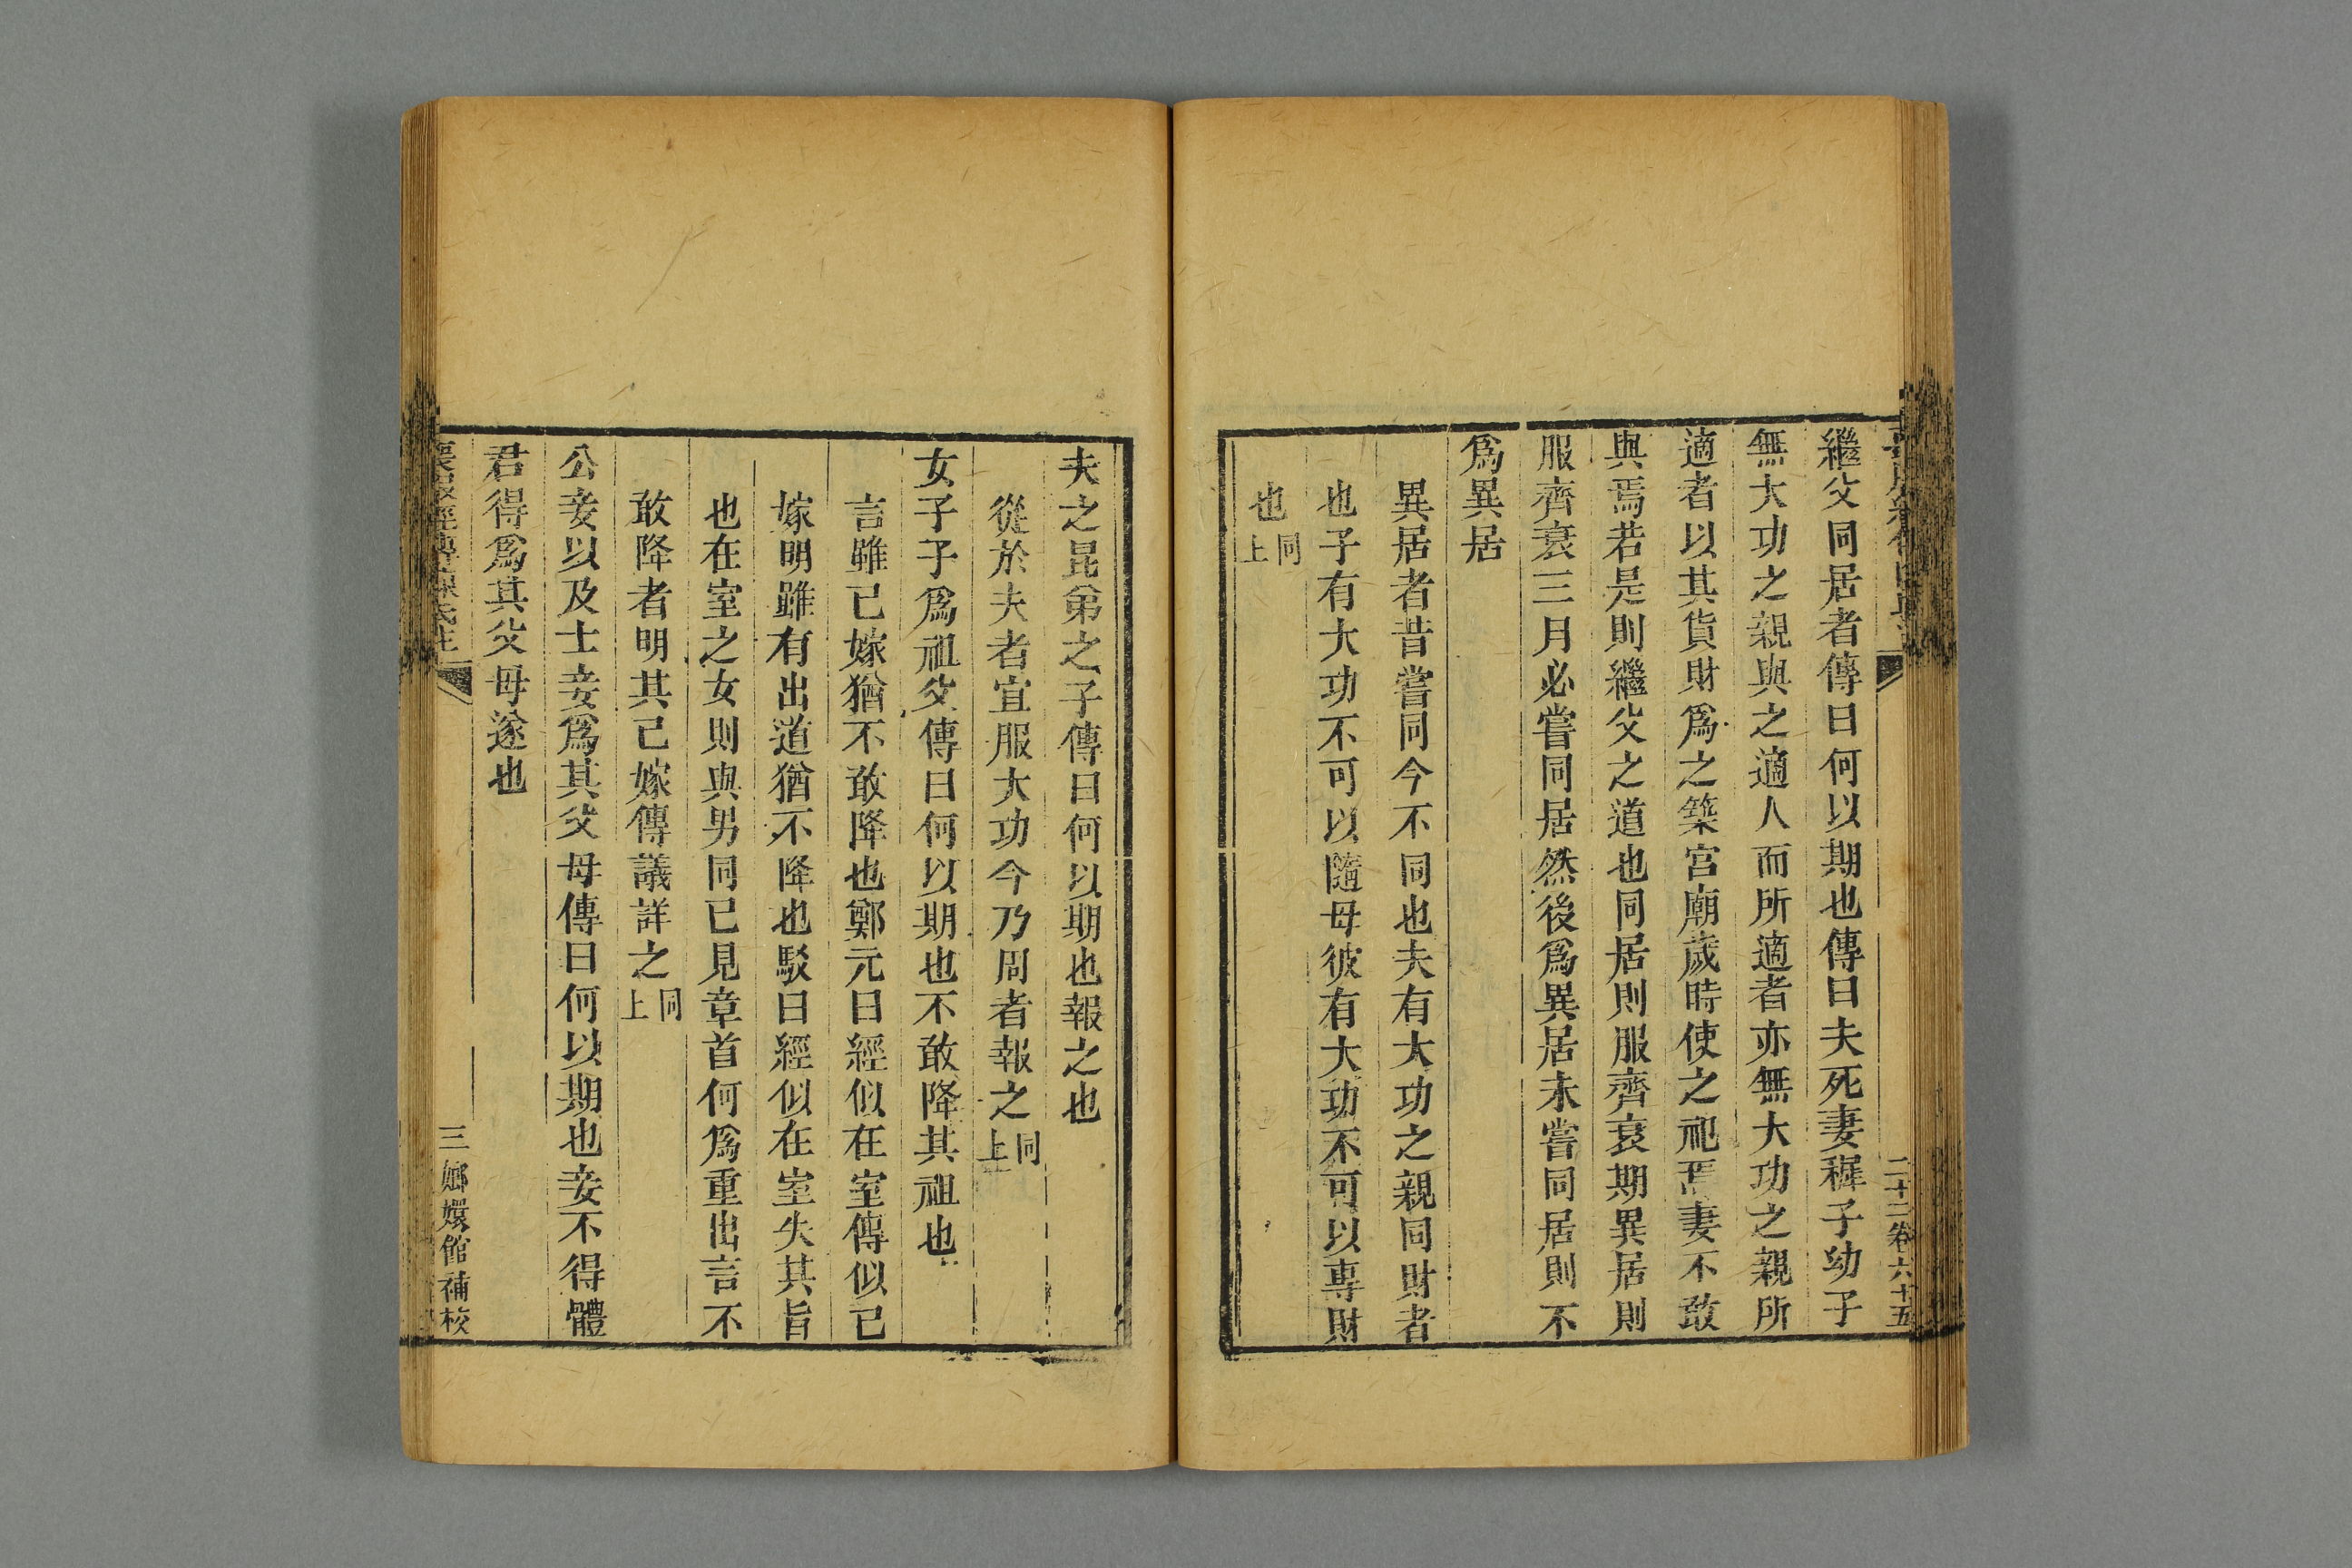 二十二卷六十五
繼父同居者傳曰何以期也傳曰夫死妻穉子幼子
無大功之親與之適人而所適者亦無大功之親所
適者以其貨財爲之築宮廟歲時使之祀焉妻不敢
與焉若是則繼父之道也同居則服齊衰期異居則
服齊衰三月必嘗同居然後爲異居未嘗同居則不
爲異居
異居者昔嘗同今不同也夫有大功之親同財者
也子有大功不可以隨母彼有大功不可以專財
也同上
夫之昆弟之子傳曰何以期也報之也
從於夫者宜服大功今乃周者報之同上
女子子爲祖父傳曰何以期也不敢降其祖也
言雖已嫁猶不敢降也鄭元曰經似在室傳似已
嫁明雖有出道猶不降也駁曰經似在室失其旨
也在室之女則與男同已見章首何爲重出言不
敢降者明其已嫁傳議詳之同上
公妾以及士妾爲其父母傳曰何以期也妾不得體
君得爲其父母遂也
三 嫏嬛館補校